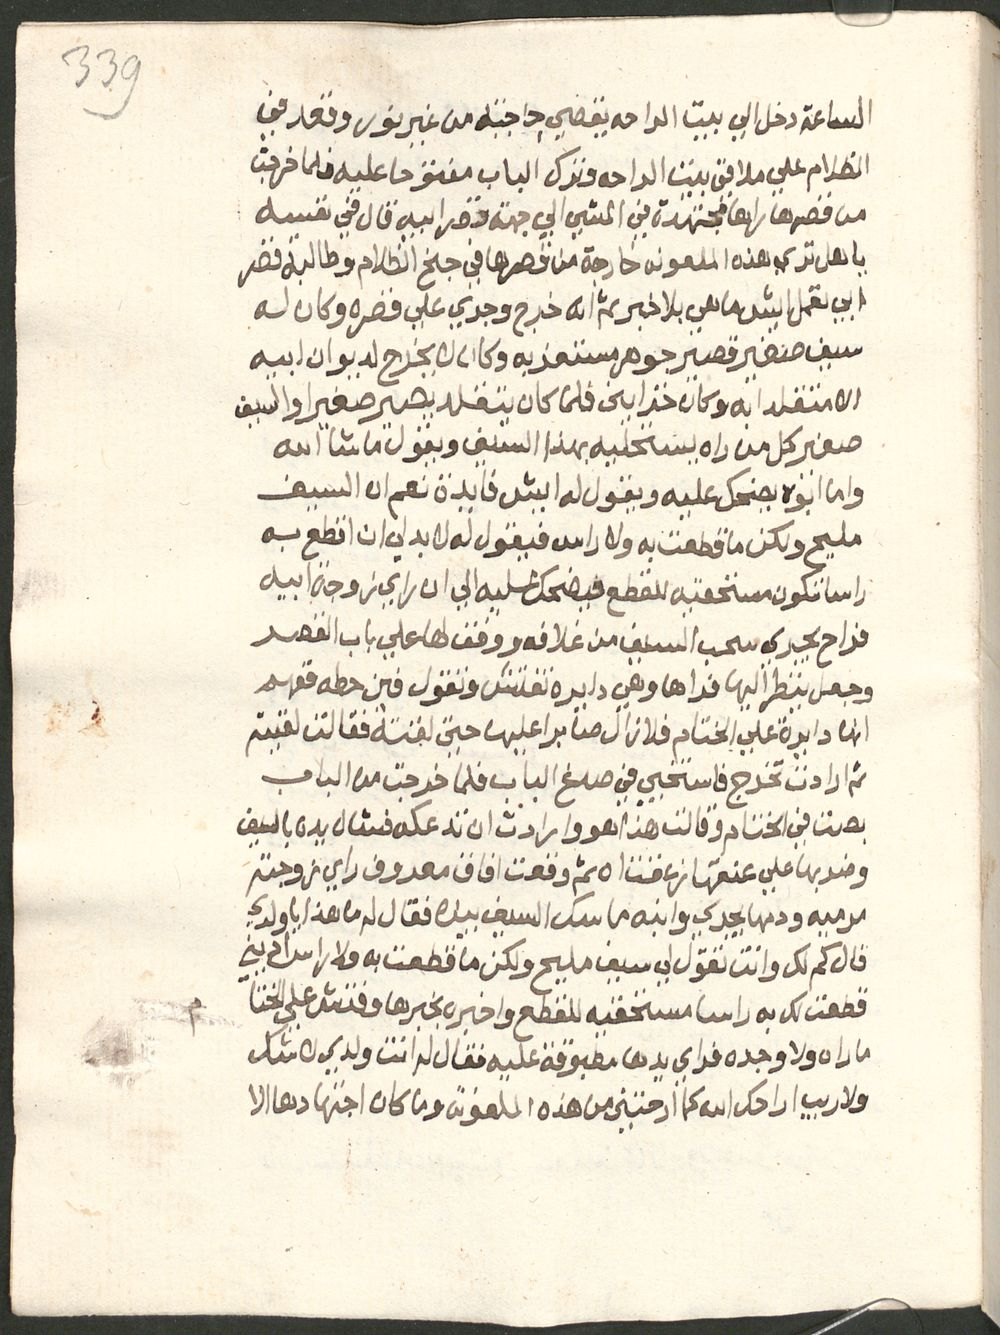 339
الساعة دخل الي بيت الراحه يقضي حاجته من غير نور وقعد في
الظلام علي ملاقي بيت الراحه وترك الباب مفتوحا عليه فلما خرجت
من قصرها راها مجتهدة في المشي الي جهة قصر ابيه قال في نفسه
يا هل تري هذه الملعونه خارجة من قصرها في جنح الظلام وطالبة قصر
ابي تعمل ايش ما هي بلا خبر ثم انه خرج وجري علي قصره وكان له
سيف صغير قصير جوهر مستعز به وكان لا يخرج لديوان ابيه
الا متقلدا به وكان خزايني فلما كان يتقلد يصير صغيرا والسيف
صغير كل من راه يستحليه بهذا السيف ويقول ما شا الله
واما ابوه يضحك عليه ويقول له ايش فايدة نعم ان السيف
مليح ولكن ما قطعت به ولا راس فيقول له لا بد لي ان اقطع به
راسا تكون مستحقيه للقطع فيضحك عليه الي ان راي زوجة ابيه
فراح يجري سحب السيف من غلافه ووقف لها علي باب القصر
وجعل ينظر اليها فراها وهي دايره تفتش وتقول فين حطه ففهم
انها دايرة علي الختام فلا زال صابرا عليها حتي لقته فقالت لقيته
ثم ارادت تخرج فاستخبي في صدغ الباب فلما خرجت من الباب
بصت في الختام وقالت هذا هو وارادت ان تدعكه فشال يده بالسيف
وضربها علي عنقها زعقت اه ثم وقعت افاق معروف راي زوجته
مرميه ودمها يجري وابنه ماسك السيف بيده فقال له ما هذا يا ولدي
قال كم لك وانت تقول لي سيف مليح ولكن ما قطعت به ولا راس اديني
قطعت لك به راسا مستحقيه للقطع واخبره بخبرها وفتش علي الختا
ما راه ولا وجده فراي يدها مطبوقة عليه فقال له انت ولدي لا شك
ولا ريب اراحك الله كما ارحتني من هذه الملعونه وما كان اجتهادها الا